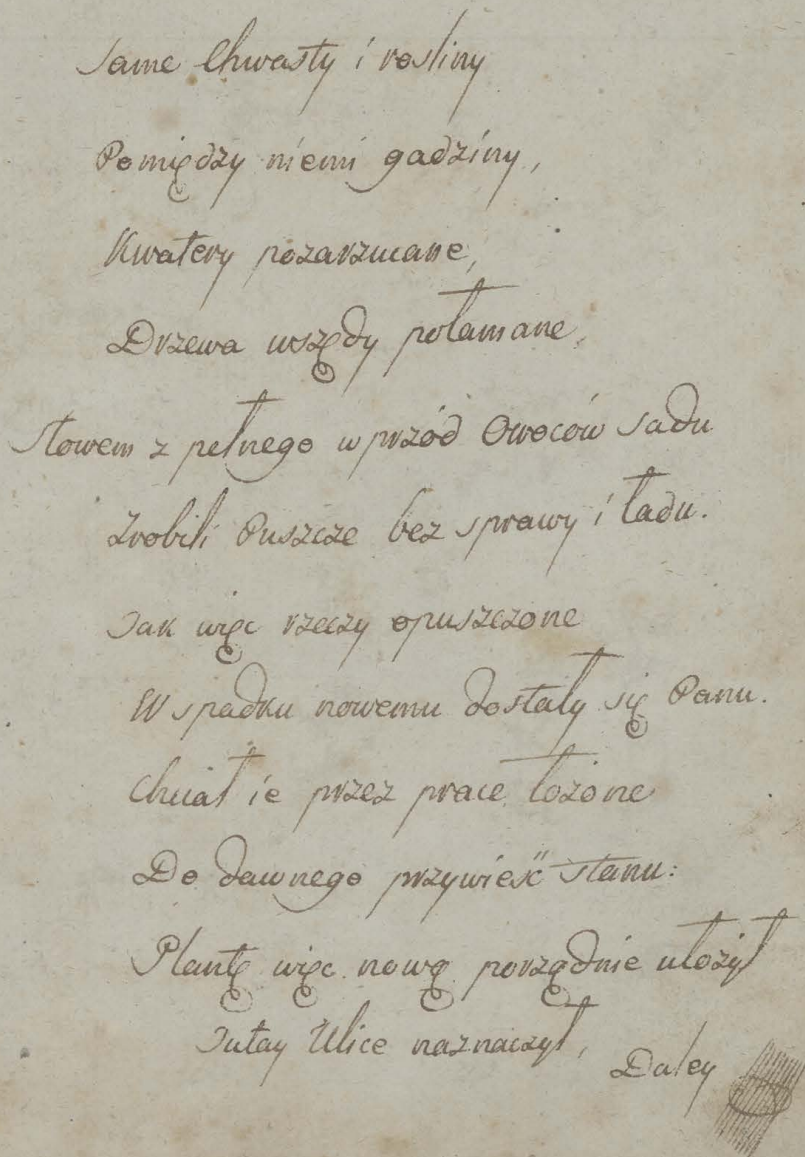 Same Chwasty i rosliny
Pomiędzy niemi gadziny,
Kwatery pozarzucane,
Drzewa wszędy połamane,
Słowem z pełnego w przód Owoców Sadu
Zrobili Puszcze bez sprawy i ładu.
Jak więc rzeczy opuszczone
W spadku nowemu dostały się Panu.
Chciał ie przez prace łożone
Do dawnego przywieść stanu:
Plantę więc nową porządnie ułożył
Tutay Ulice naznaczył,
Daley